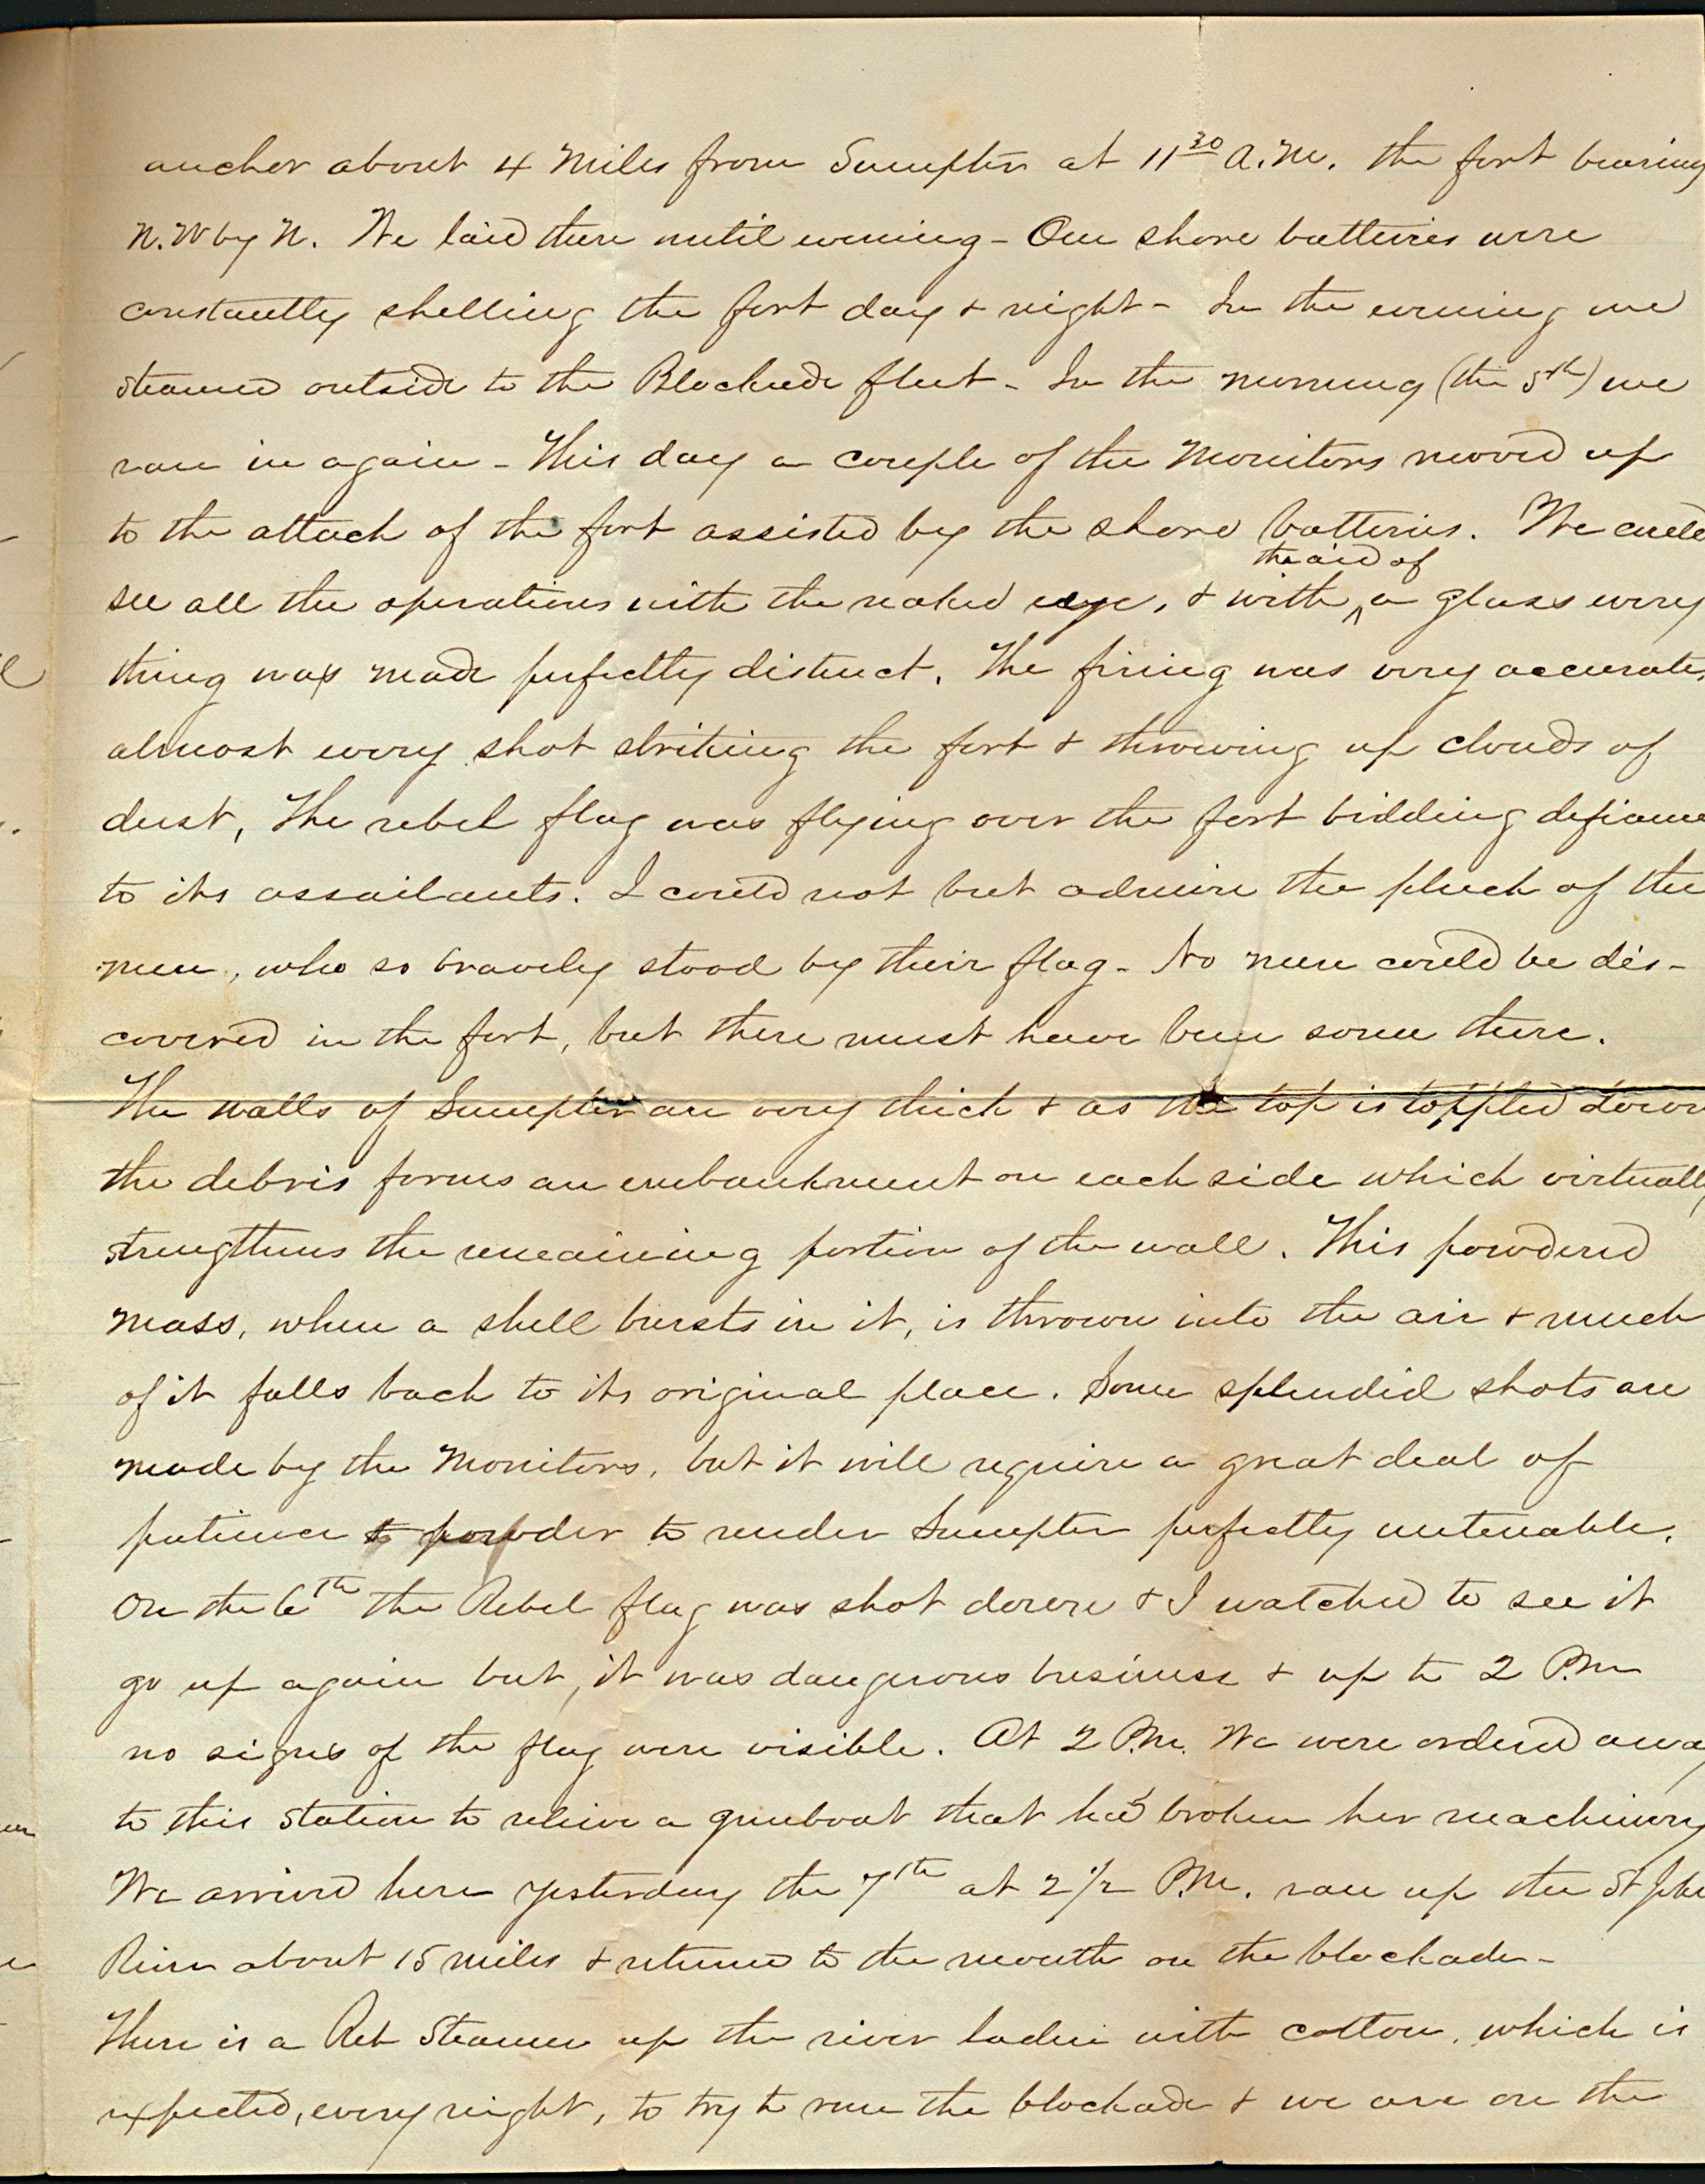 anchor about 4 Miles from Sumpter at 11 30 A.M. the fort bearing
N.W by N. We laid there until evening - Our shore batteries were
constantly shelling the fort day & night - In the evening we
steamed outside to the Blockade fleet - In the morning (the 5th) we
ran in again - This day a couple of the Monitors moved up
to the attack of the fort assisted by the shore batteries. We could
the aid of
see all the operations with the naked eye, & with ^ a glass every
thing was made perfectly distinct. The firing was very accurate,
almost every shot striking the fort & throwing up clouds of
dust, The rebel flag was flying over the fort bidding defiance
to its assailants. I could not but admire the pluck of the
men, who so bravely stood by their flag - No men could be dis-
covered in the fort, but there must have been some there.
The walls of Sumpter are very thick & as the top is toppled down
the debris forms an embankment on each side which virtually
strengthens the remaining portion of the wall. This powdered
mass, when a shell bursts in it, is thrown into the air & much
of it falls back to its original place. Some splendid shots are
made by the Monitors, but it will require a great deal of
patience & powder to render Sumpter perfectly untenable.
On the 6th the Rebel flag was shot down & I watched to see it
go up again but, it was dangerous business & up to 2 P.M
no signs of the flag were visible. At 2 P.M. We were ordered away
to this station to relieve a gunboat that had broken her machinery
We arrived here yesterday the 7th at 2 1/2 P.M. ran up the St John
River about 15 miles & returned to the mouth on the blockade -
There is a Reb Steamer up the river laden with cotton, which is
expected, every night, to try to run the blockade & we are on the